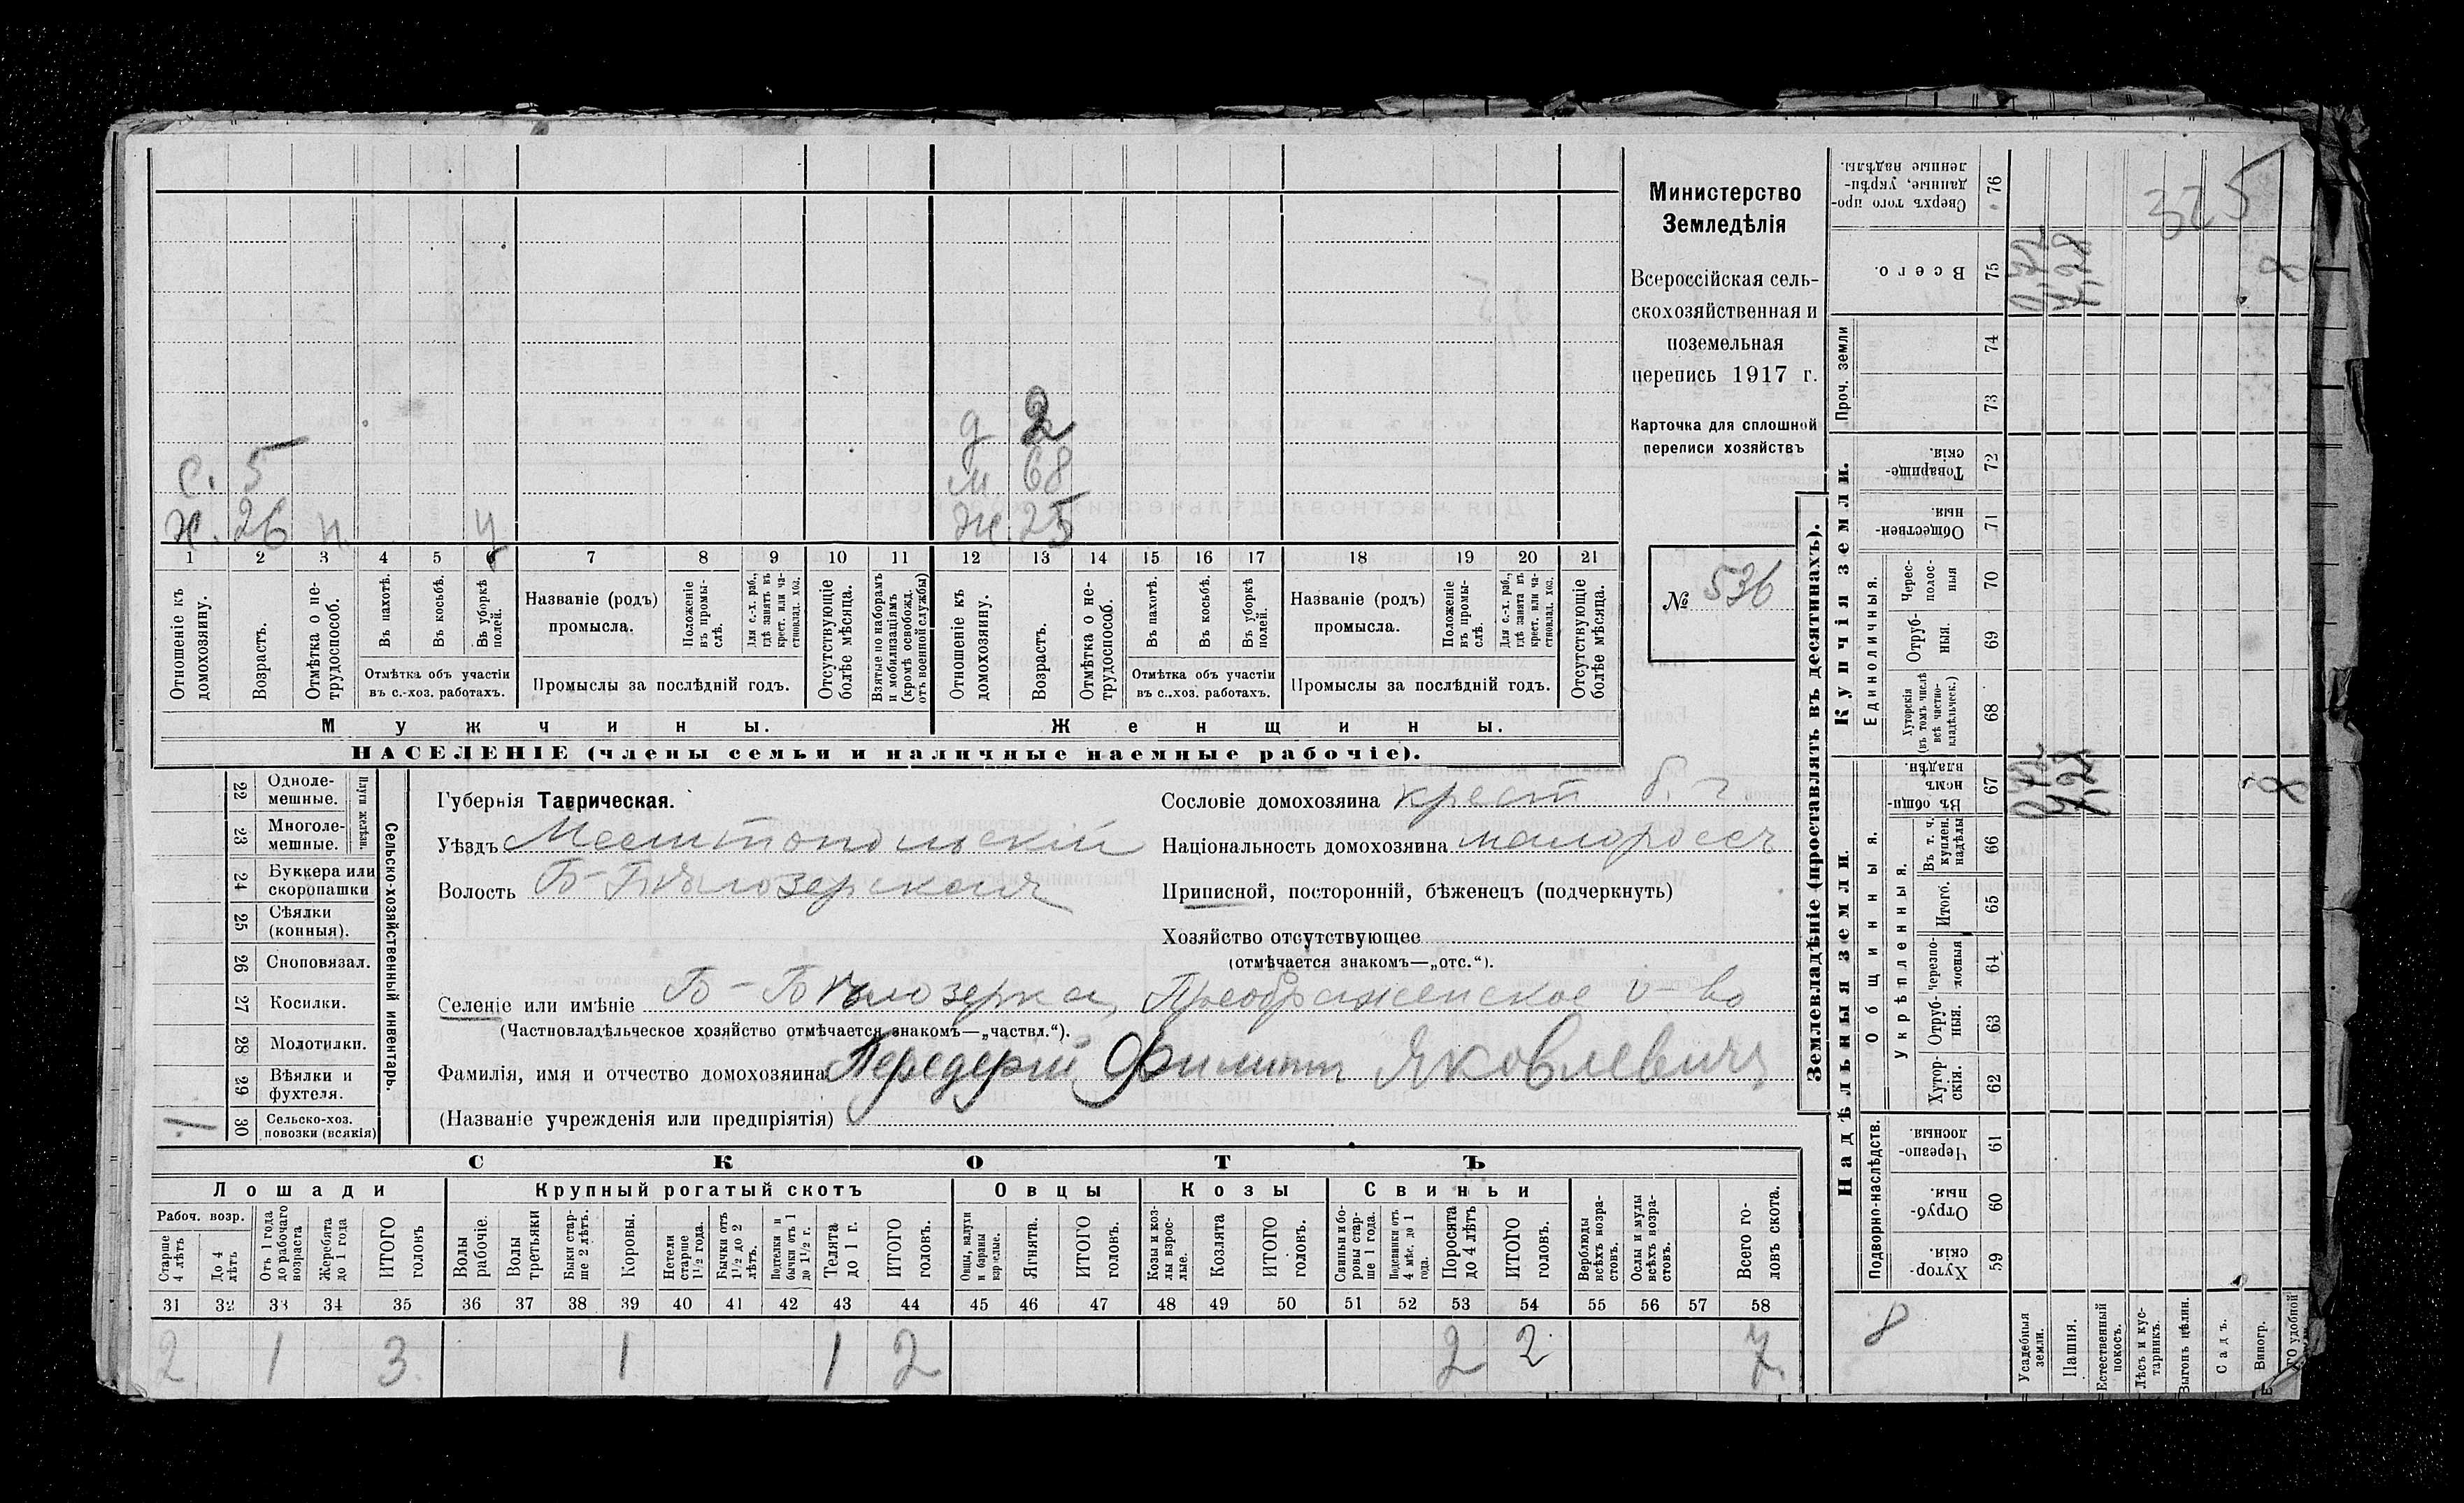 325
Министерство
Земледѣлія
Всероссійская сель-
скохозяйственная и
поземельная
перепись 1917 г.
Карточка для сплошной
переписи хозяйствъ
№ 536
д 2
с. 5 м 68
х. 26 ж 25
1 2 3 4 5 6 7 8 9 10 11 12 13 14 15 16 17 18 19 20 21
Отношеніе къ домохозяину.
Возрастъ.
Отмѣтка о не-трудоспособ.
Въ пахотѣ.
Въ косьбѣ.
Въ уборкѣ полей.
Отмѣтка объ участіи
въ с.-хоз. работахъ.
Названіе (родъ)
промысла.
Положеніе въ промы-слѣ.
Для с.-х. раб., гдѣ занятъ въ крест. или ча-стновлад. хоз.
Промыслы за послѣдній годъ.
Отсутствующіе болѣе мѣсяца.
Взятые по наборамъ и мобилизаціямъ (кромѣ освобожд. отъ военной службы)
Отношеніе къ домохозяину.
Возрастъ.
Отмѣтка о не-трудоспособ.
Въ пахотѣ.
Въ косьбѣ.
Въ уборкѣ полей.
Отмѣтка объ участіи
въ с..хоз. работахъ.
Названіе (родъ)
промысла.
Положеніе въ промы-слѣ.
Для с.-х. раб., гдѣ занята въ крест. или ча-стновлад. хоз.
Промыслы за послѣдній годъ.
Отсутствующіе болѣе мѣсяца.
Мужчины. Женщины.
НАСЕЛЕНІЕ (члены семьи и наличные наемные рабочіе).
22 Одноле-мешные.
23 Многоле-мешные.
Плуги желѣзн.
24 Буккера или скоропашки
25 Сѣялки (конныя).
26 Сноповязал.
27 Косилки.
28 Молотилки.
29 Вѣялки и фухтеля.
1 30 Сельско-хоз. повозки (всякія)
Сельско-хозяйственный инвентарь.
Губернія Таврическая.
Уѣздъ Мелитопольскій
Волость Б-Бѣлозерская
Сословіе домохозяина крест.
Національность домохозяина малороссъ
Приписной, посторонній, бѣженецъ (подчеркнуть)
Хозяйство отсутствующее
(отмѣчается знакомъ—„отс.“).
Селеніе или имѣніе Б-Бѣлозерка, Преображенское о-во
(Частновладѣльческое хозяйство отмѣчается знакомъ—„частвл.“).
Фамилія, имя и отчество домохозяина Передерій Филиппъ Яковлевичъ
(Названіе учрежденія или предпріятія)
СКОТЪ
Лошади Крупный рогатый скотъ Овцы Козы Свиньи
Рабоч. возр.
Старше 4 лѣтъ
До 4 лѣтъ
Отъ 1 года до рабочаго возраста
Жеребята до 1 года
ИТОГО головъ
Волы рабочіе.
Волы третьяки
Быки стар-ше 2 лѣтъ.
Коровы.
Нетели старше 1 1/2 года.
Бычки отъ 1 1/2 до 2 лѣтъ.
Подтелки и бычки отъ 1 до 1 1/2 г.
Телята до 1 г.
ИТОГО головъ.
Овцы, валухи и бараны взрослые.
Ягнята.
ИТОГО головъ.
Козы и коз-лы взрос-лые.
Козлята
ИТОГО головъ.
Свиньи и бо-ровы стар-ше 1 года.
Подсвинки отъ 4 мѣс. до 1 года.
Поросята до 4 лѣтъ
ИТОГО головъ.
Верблюды всѣхъ возра-стовъ.
Ослы и мулы всѣхъ возра-стовъ.
Всего го-ловъ скота.
31 32 33 34 35 36 37 38 39 40 41 42 43 44 45 46 47 48 49 50 51 52 53 54 55 56 57 58
2 1 3 1 1 2 2 2 7
Землевладѣніе (проставлять въ десятинахъ).
Купчія земли.
Надѣльныя земли.
76 Сверхъ того про-данные, укрѣп-ленные надѣлы.
75 Всего.
Проч. земли
74
73
72 Товарище-скія.
71 Обществен-ныя.
Единоличныя.
70 Черес-полос-ныя
69 Отруб-ныя.
68 Хуторскія (въ томъ числѣ всѣ частно-владѣльческ.)
Общинныя.
67 Въ общин-номъ владѣн.
Укрѣпленныя.
66 Въ т. ч. куплен. надѣлы
65 Итого.
64 Черезпо-лосныя
63 Отруб-ныя.
62 Хутор-скія.
Подворно-наслѣдств.
61 Черезпо-лосныя.
60 Отруб-ныя.
59 Хутор-скія.
8
Усадебныя земли.
Пашня.
Естественный покосъ.
Лѣсъ и кус-тарникъ.
Выгонъ цѣлин.
Садъ.
Виногр.